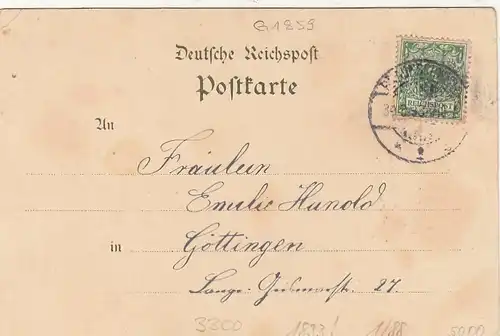 G1859
Deutsche Reichspost
Postkarte
An
Fräulein
Emilie Hunold
in Göttingen
Lange-Geismarstr. 27.
3300 1893! 1188 5000